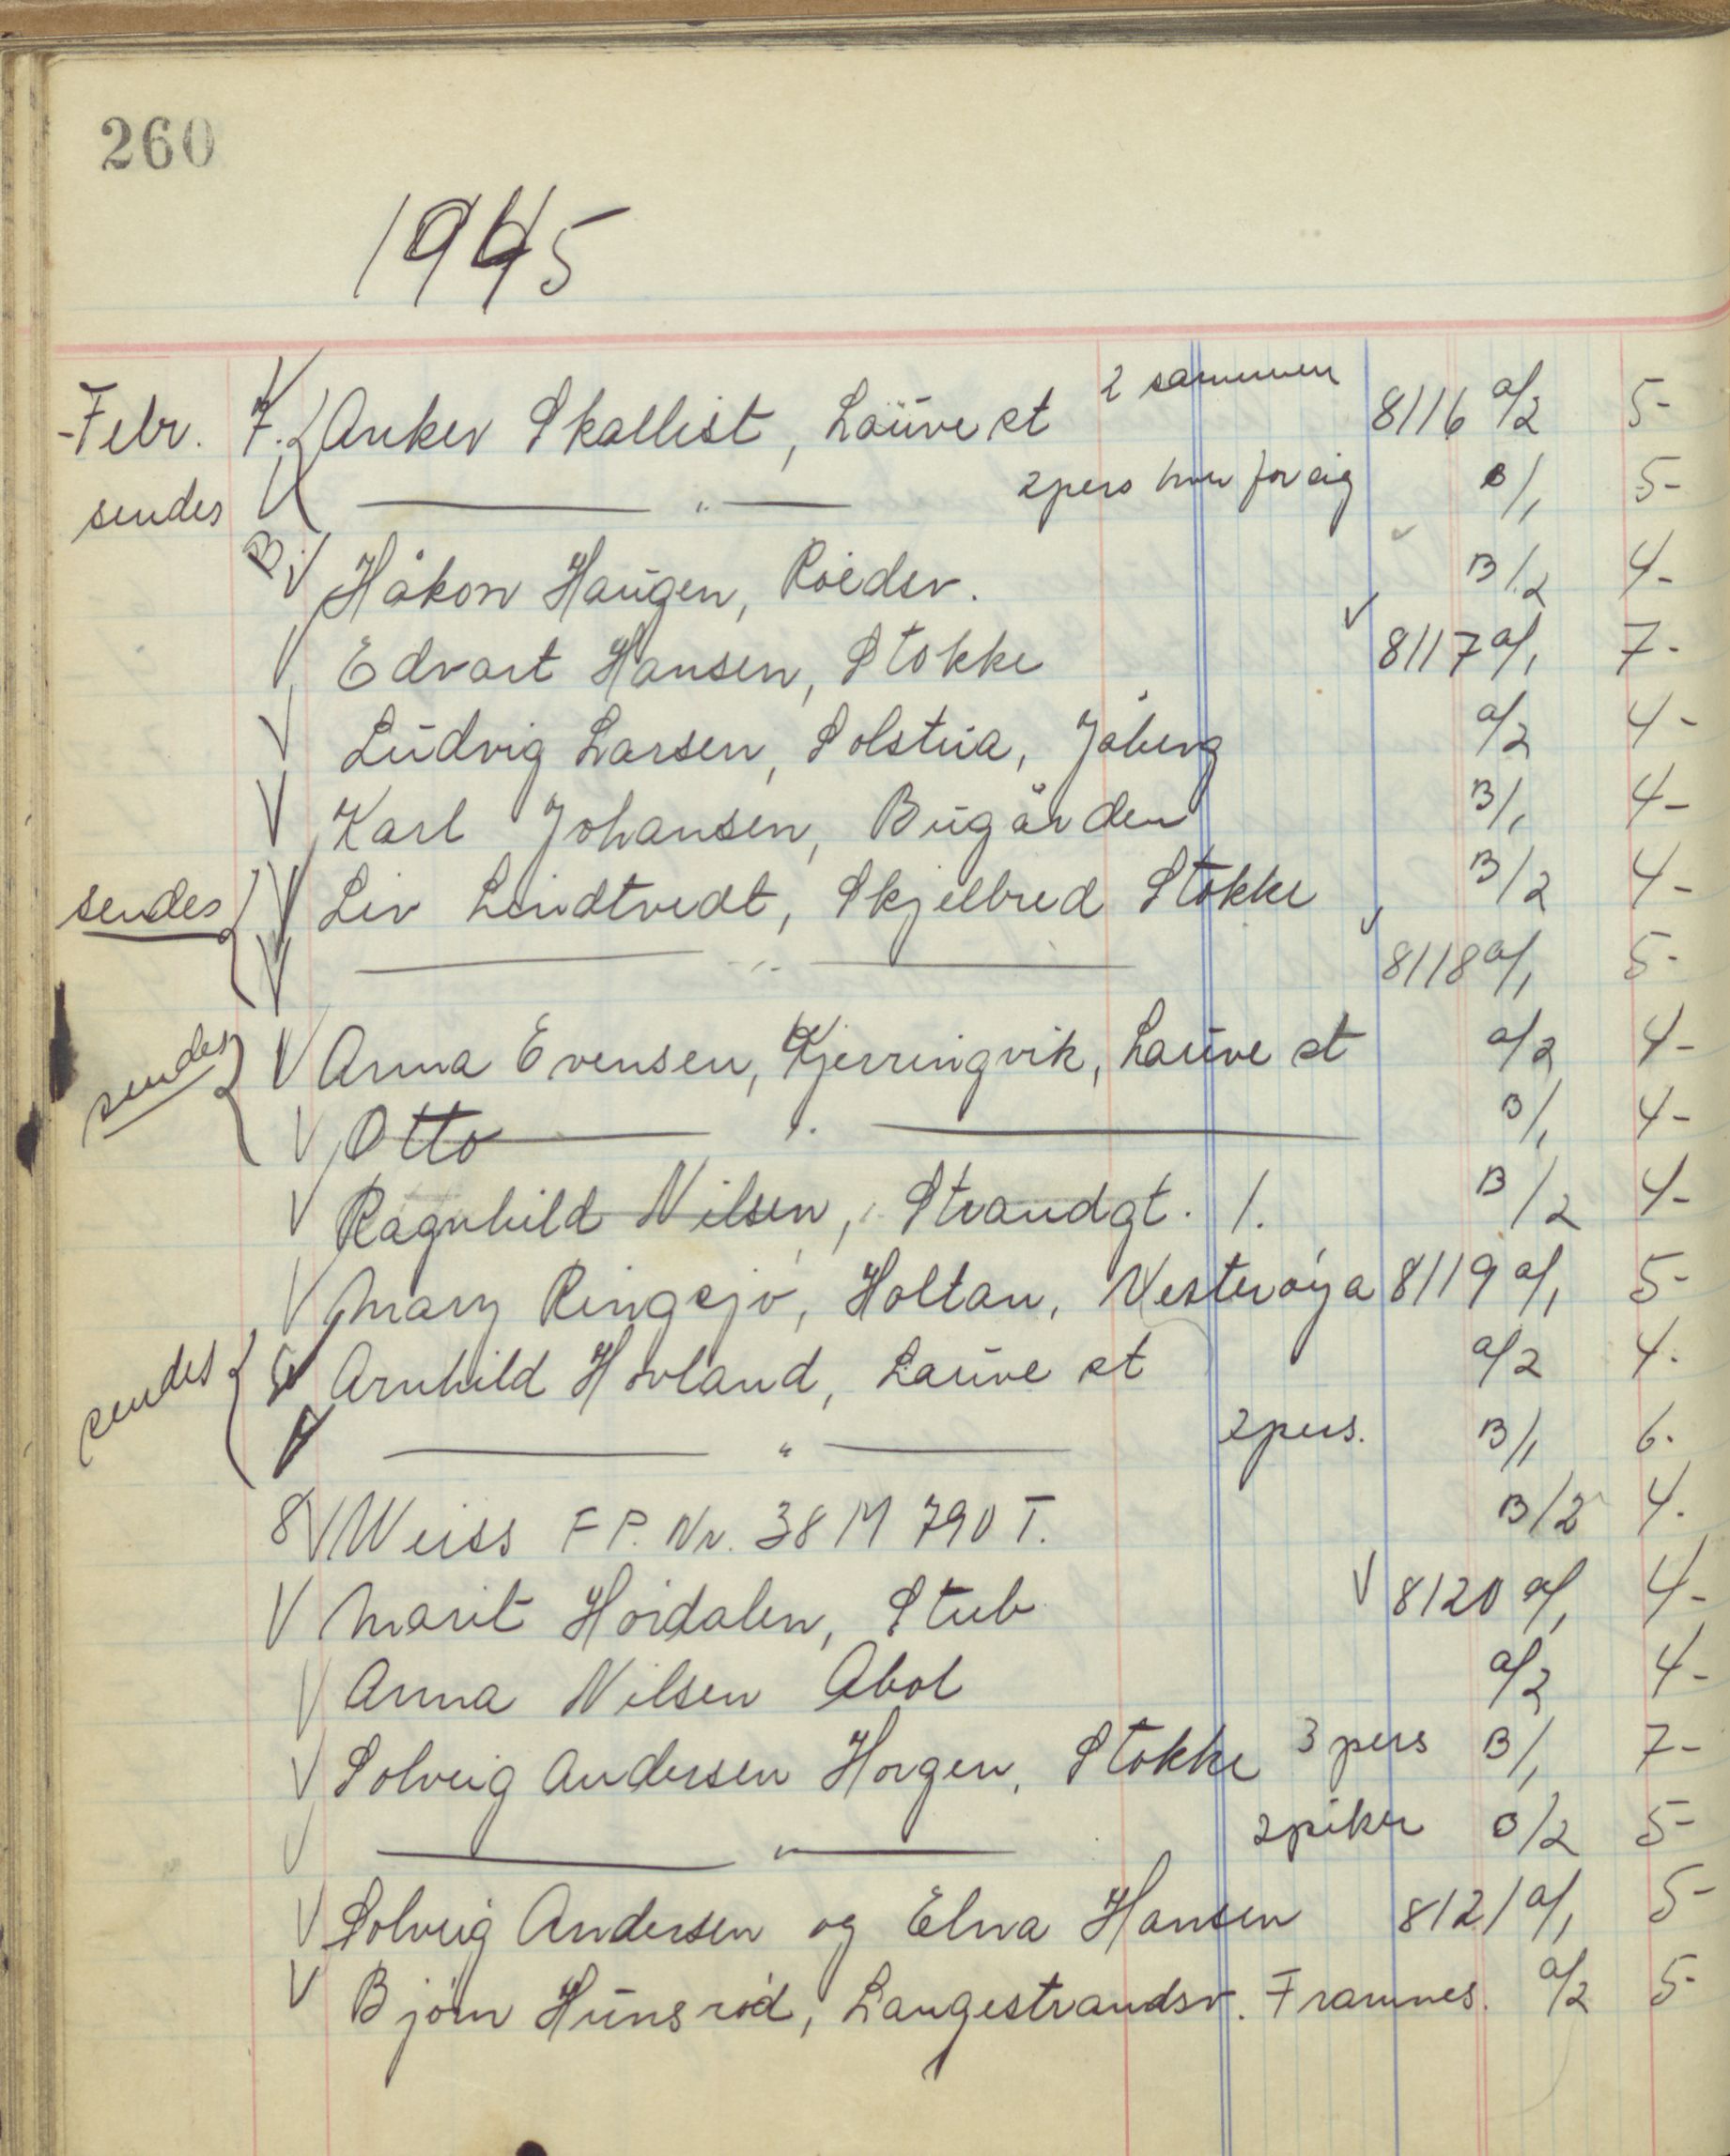 260
1945
Febr. 7. Anker Skallist, Lauve st 2 sammen 8116 a/2 5-
sendes — " — 2 pers hver for sig B/1 5-
B. Håkon Haugen, Roedsv. B/2 4-
Edvart Hansen, Stokke 8117 a/1 7-
Ludvig Larsen, Solstua, Jåberg a/2 4-
Karl Johansen, Bugården B/1 4-
sendes Liv Lindtvedt, Skjelbred Stokke B/2 4-
— " — 8118 a/1 5-
sendes Anna Evensen, Kjerringvik, Lauve st a/2 4-
Otto — " — B/1 4-
Ragnhild Nilsen, Strandgt. 1. B/2 4-
Mary Ringsjø, Holtan, Vesterøya 8119 a/1 5-
sendes Arnhild Hovland, Lauve st a/2 4.
— " — 2 pers. B/1 6.
8 Weiss F P. Nr. 38 M 790 T. B/2 4.
Marit Hoidalen, Stub 8120 a/1 4-
Anna Nilsen Abol a/2 4-
Solveig Andersen Horgen, Stokke 3 pers B/1 7-
— " — 2 piker B/2 5-
Solveig Andersen og Elna Hansen 8121 a/1 5-
Bjørn Hunsrød, Langestrandsv. Framnes. a/2 5-